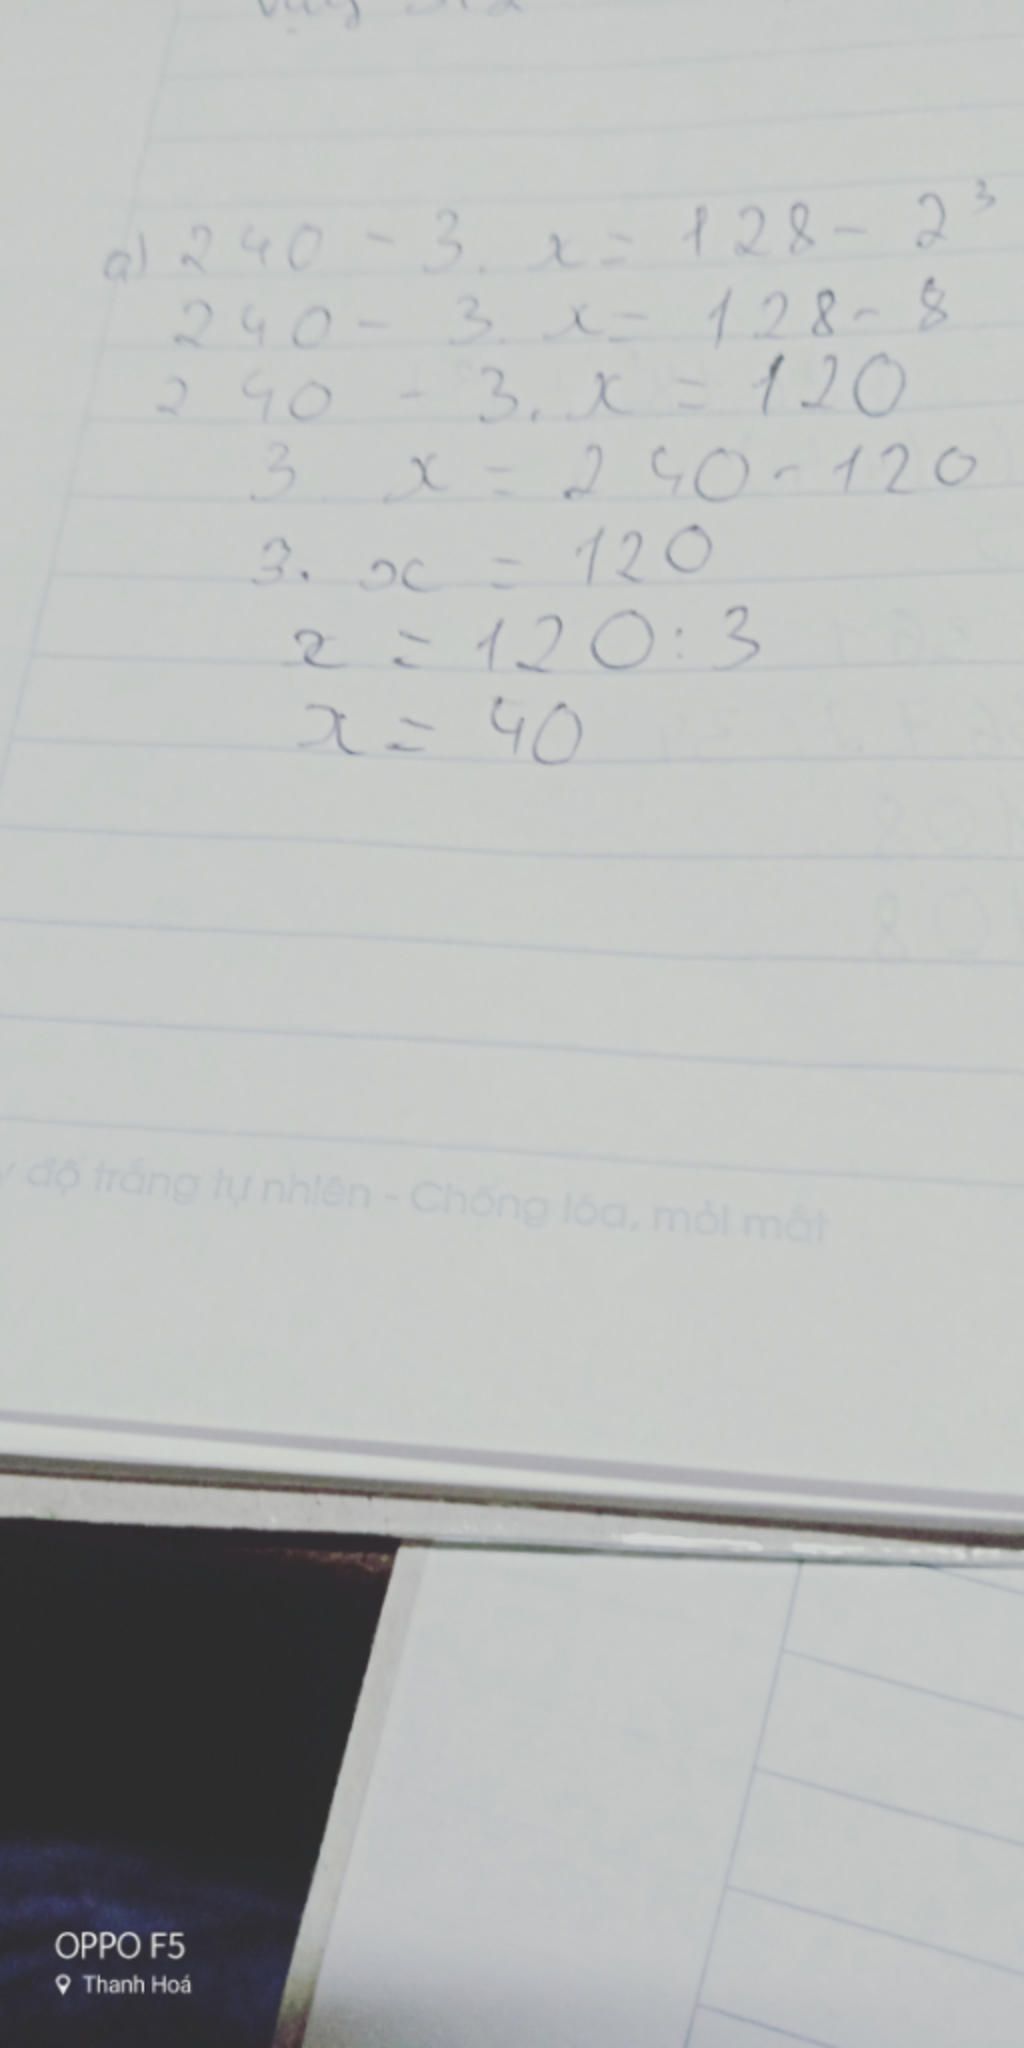 a) 240 - 3. x = 128 - 2³
240 - 3. x = 128 - 8
240 - 3. x = 120
3 x = 240 - 120
3. x = 120
x = 120 : 3
x = 40
độ trắng tự nhiên - Chống lóa, mỏi mắt
OPPO F5
Thanh Hoá